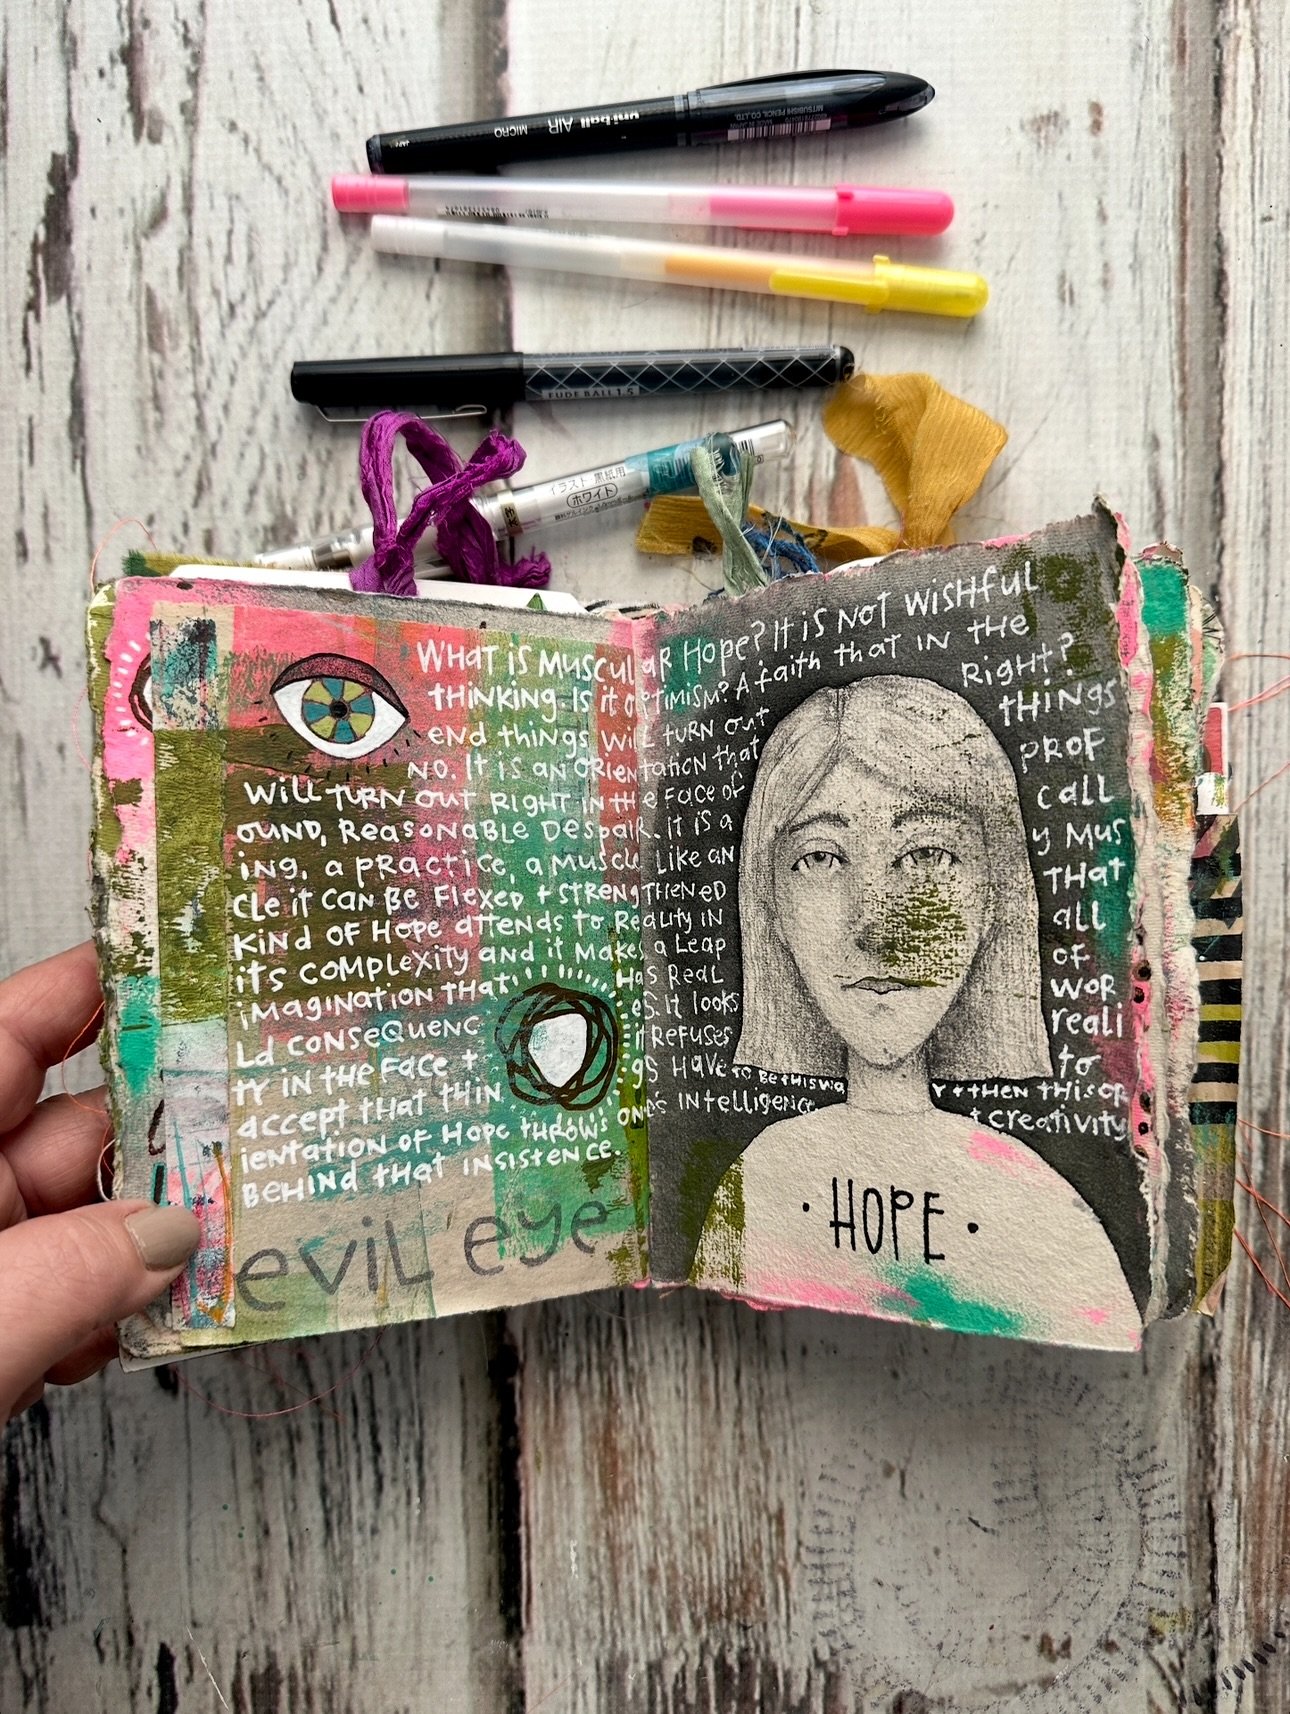 uni-ball AIR MICRO
MITSUBISHI PENCIL CO.,LTD.
MADE IN JAPAN
FUDE BALL 1.5
イラスト 黒紙用
ホワイト
WHAT iS MUSCULAR HOPE? It iS NOT WISHFUL
THiNKiNG. IS it OPTIMISM? A faith that in the
end things will TURN out Right?
NO. It iS an ORientation that things
will TURN OUT RiGHT iN THe Face of PROF
OUND, Reasonable Despair. it iS a call
ing, a practice, a Muscle Like an y MUS
cle it can Be Flexed + strengthened THat
Kind of Hope attends to Reality in all
its complexity and it Makes a Leap of
imagination that Has Real WOR
Ld consequences. It looks reali
ty in the face + it Refuses to
accept that things Have to Be this way + then this or
ientation of Hope throws one's intelligence + creativity
Behind that insistence.
evil eye
· HOPE ·